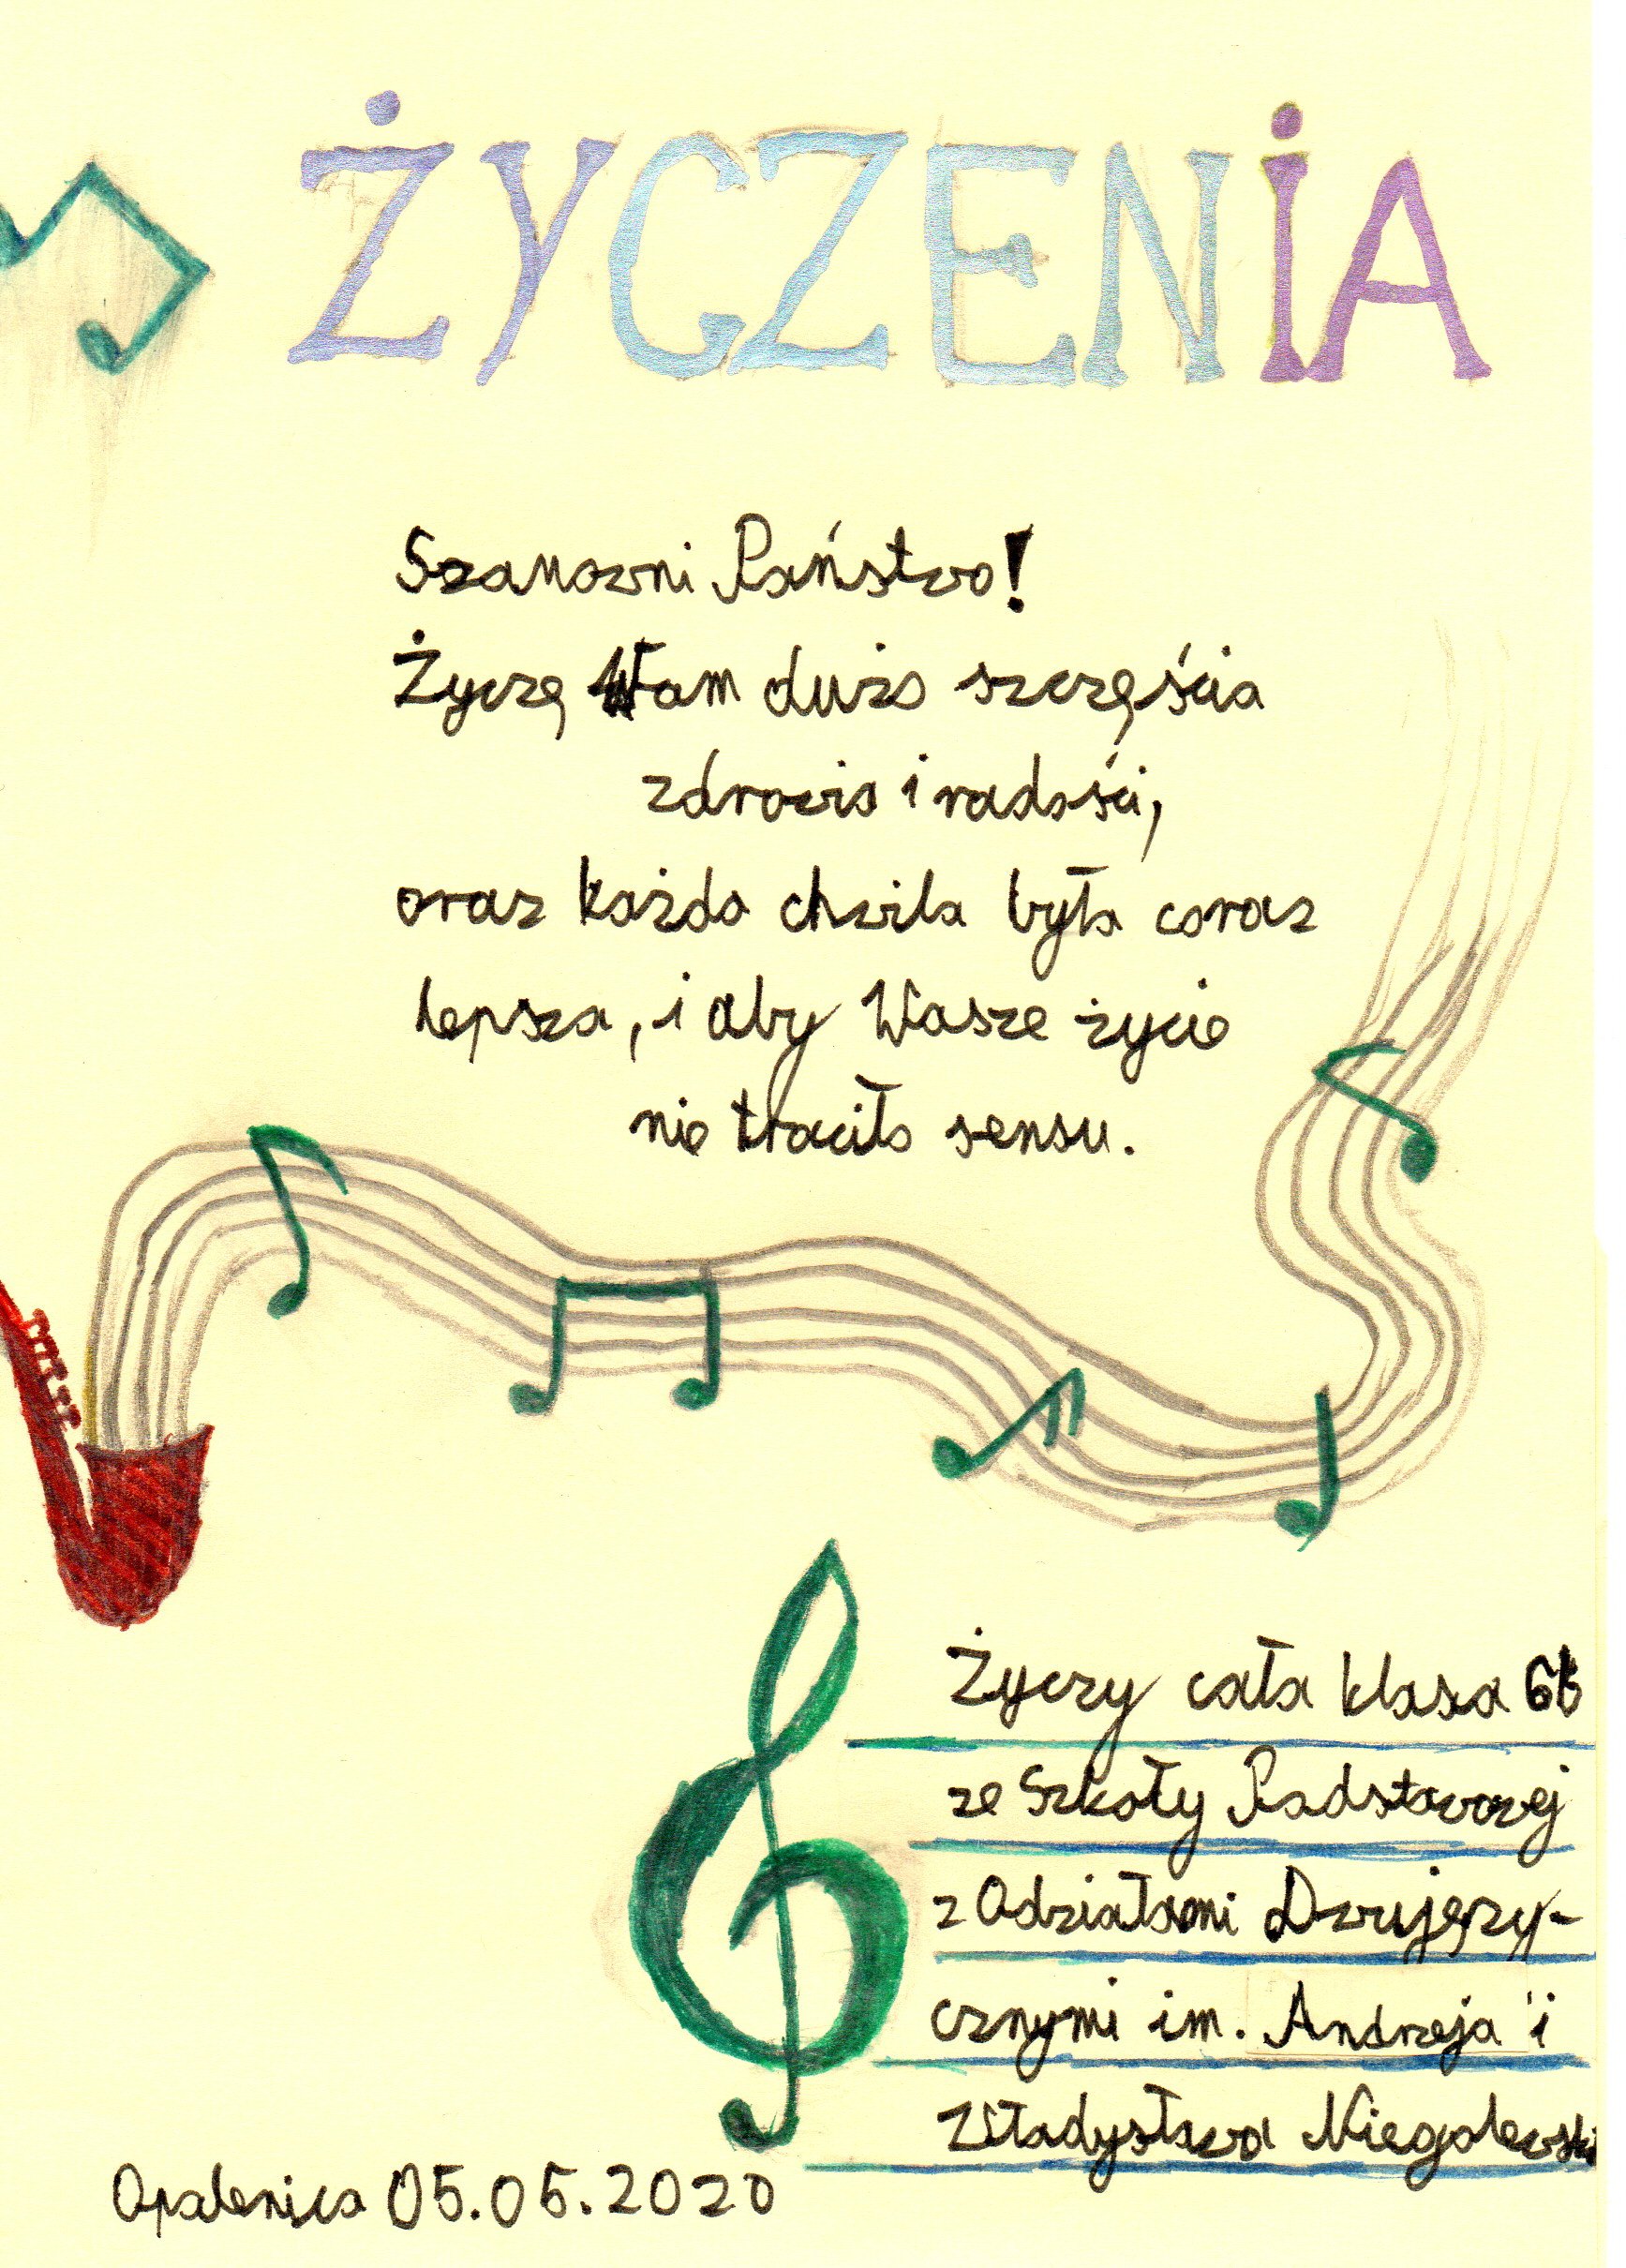 ŻYCZENIA
Szanowni Państwo!
Życzę Wam dużo szczęścia
zdrowia i radości,
oraz każda chwila była coraz
lepsza, i aby Wasze życie
nie traciło sensu.
Życzy cała klasa 6b
ze Szkoły Podstawowej
z Odziałami Dwujęzy-
cznymi im. Andrzeja i
Władysława Niegolewski
Opalenica 05.05.2020